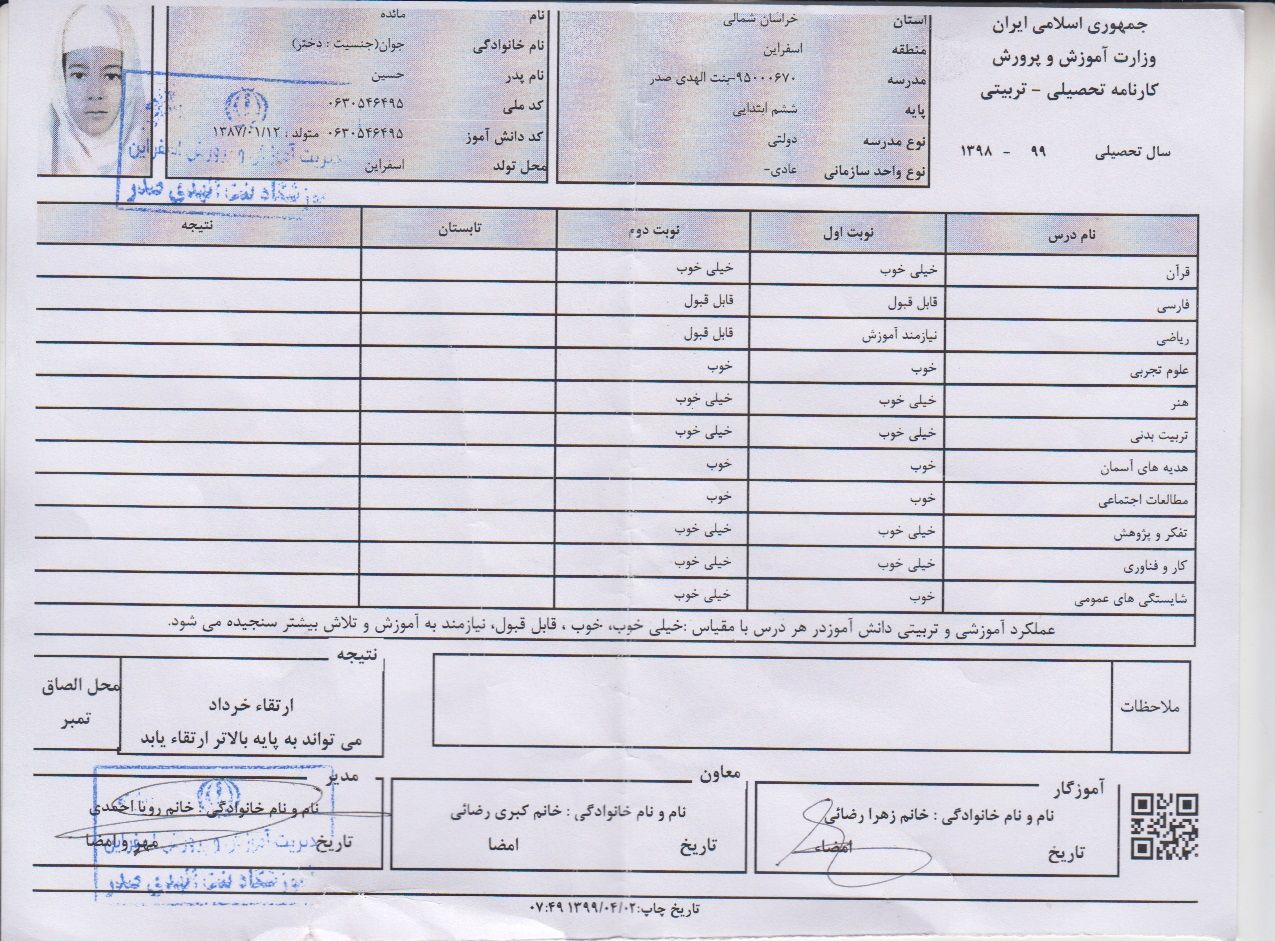 جمهوری اسلامی ایران
وزارت آموزش و پرورش
کارنامه تحصیلی - تربیتی
سال تحصیلی ۹۹ - ۱۳۹۸
استان خراسان شمالی
منطقه اسفراین
مدرسه ۹۵۰۰۰۶۷۰-بنت الهدی صدر
پایه ششم ابتدایی
نوع مدرسه دولتی
نوع واحد سازمانی عادی-
نام مائده
نام خانوادگی جوان(جنسیت : دختر)
نام پدر حسین
کد ملی ۰۶۳۰۵۴۶۴۹۵
کد دانش آموز ۰۶۳۰۵۴۶۴۹۵ متولد : ۱۳۸۷/۰۱/۱۲
محل تولد اسفراین
مدیریت آموزش و پرورش اسفراین
آموزشگاه بنت الهدی صدر
نام درس نوبت اول نوبت دوم تابستان نتیجه
قرآن خیلی خوب خیلی خوب
فارسی قابل قبول قابل قبول
ریاضی نیازمند آموزش قابل قبول
علوم تجربی خوب خوب
هنر خیلی خوب خیلی خوب
تربیت بدنی خیلی خوب خیلی خوب
هدیه های آسمان خوب خوب
مطالعات اجتماعی خوب خوب
تفکر و پژوهش خیلی خوب خیلی خوب
کار و فناوری خیلی خوب خیلی خوب
شایستگی های عمومی خوب خیلی خوب
عملکرد آموزشی و تربیتی دانش آموزدر هر درس با مقیاس :خیلی خوب، خوب ، قابل قبول، نیازمند به آموزش و تلاش بیشتر سنجیده می شود.
ملاحظات
نتیجه
ارتقاء خرداد
می تواند به پایه بالاتر ارتقاء یابد
محل الصاق
تمبر
آموزگار
نام و نام خانوادگی : خانم زهرا رضائی
تاریخ امضاء
معاون
نام و نام خانوادگی : خانم کبری رضائی
تاریخ امضا
مدیر
نام و نام خانوادگی : خانم رویا احمدی
تاریخ مهر و امضا
مدیریت آموزش و پرورش اسفراین
آموزشگاه بنت الهدی صدر
تاریخ چاپ:۱۳۹۹/۰۴/۰۲ ۰۷:۴۹